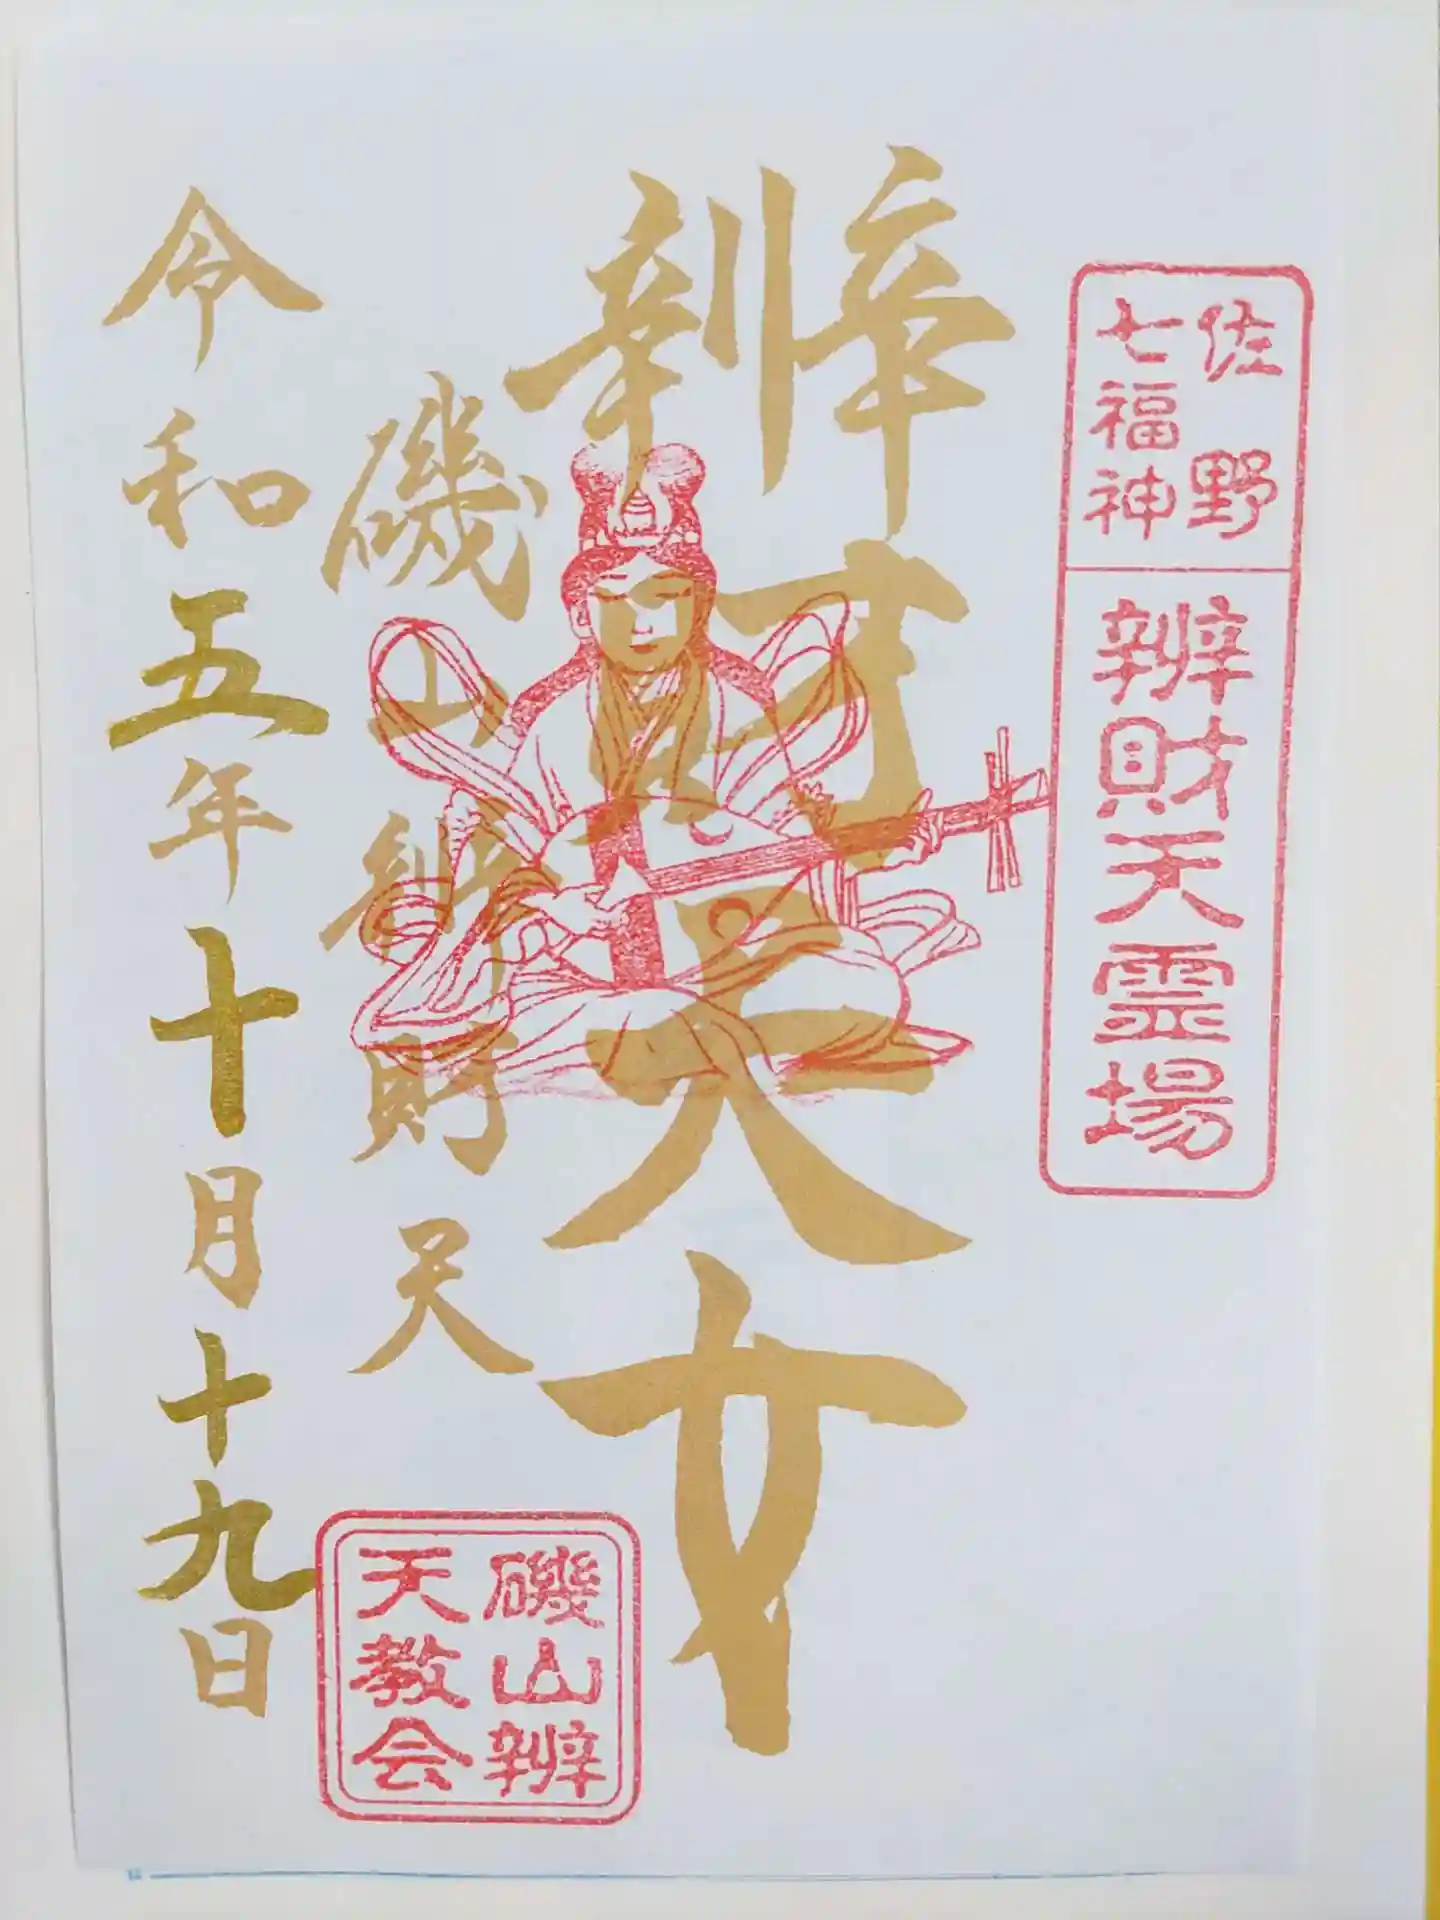 佐野
七福神
辨財天霊場
辨財天女
磯山辨財天
令和五年十月十九日
磯山辨
天教会